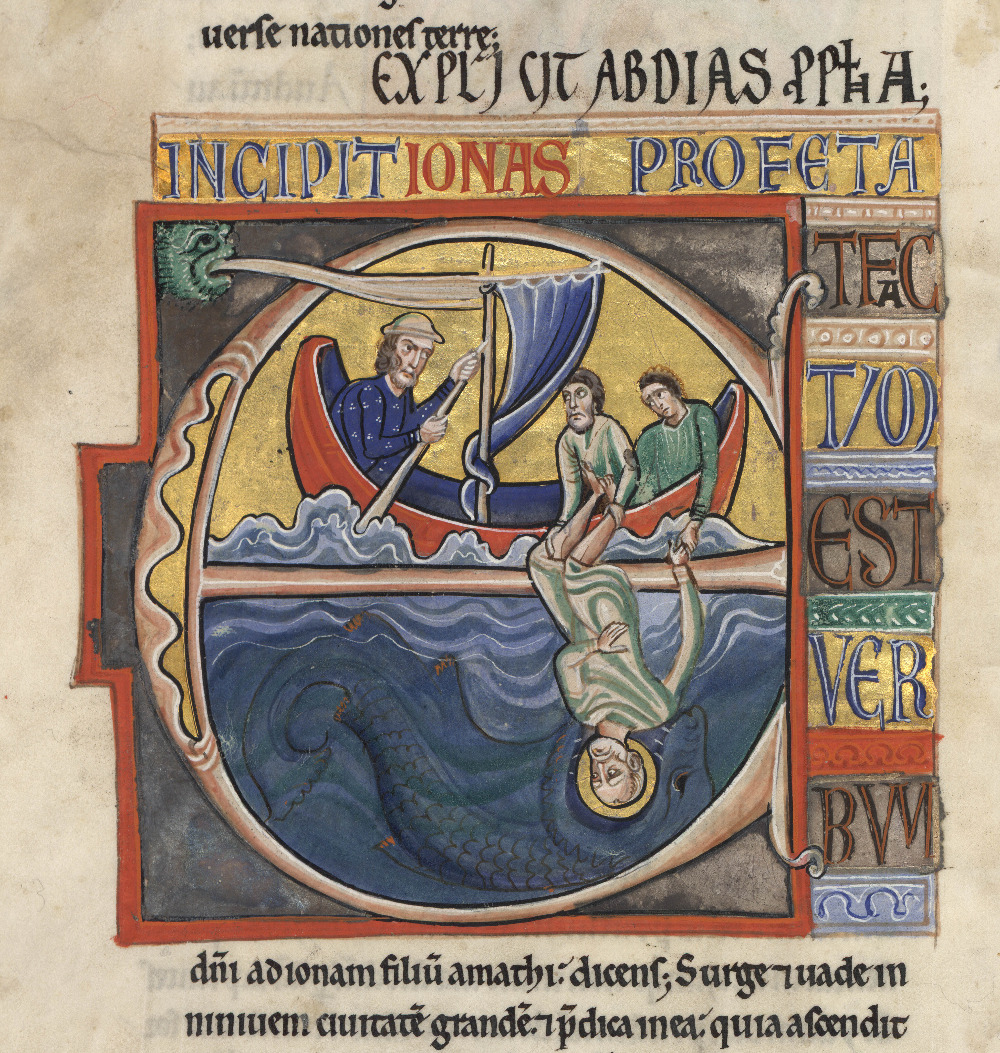 uerse nationes terre;
EXPLICIT ABDIAS PPħA;
INCIPIT IONAS PROFETA
E
TFAC
TVM
EST
VER
BVM
dn̄i ad ionam filiū amathi: dicens; Surge ⁊ uade in
niniuem ciuitatē grandē: ⁊ p̄dica in ea: quia ascendit